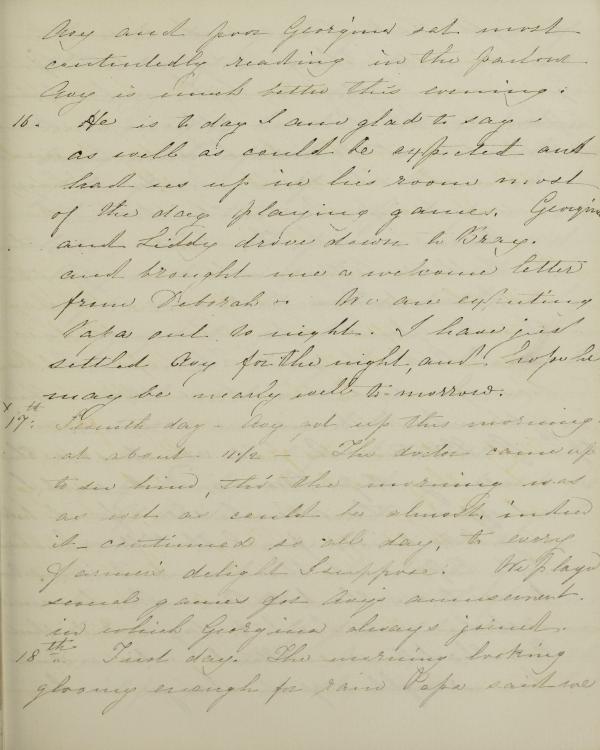 Avy and poor Georgina sat most
contentedly reading in the parlour
Avy is much better this evening.
16. He is to day I am glad to say
as well as could be expected and
had us up in his room most
of the day playing games. Georgina
and Liddy drove down to Bray.
and brought me a welcome letter
from Deborah. We are expecting
Papa out to night. I have just
settled Avy for the night, and hope he
may be nearly well to-morrow.
x 17th. Seventh day - Avy got up this morning
at about 11½ - The doctor came up
to see him, tho' the morning was
as wet as could be almost, indeed
it continued so all day, to every
farmer's delight I suppose. We play'd
several games for Avy's amusement.
in which Georgina always joined.
18th. First day. The morning looking
gloomy enough for rain Papa said we